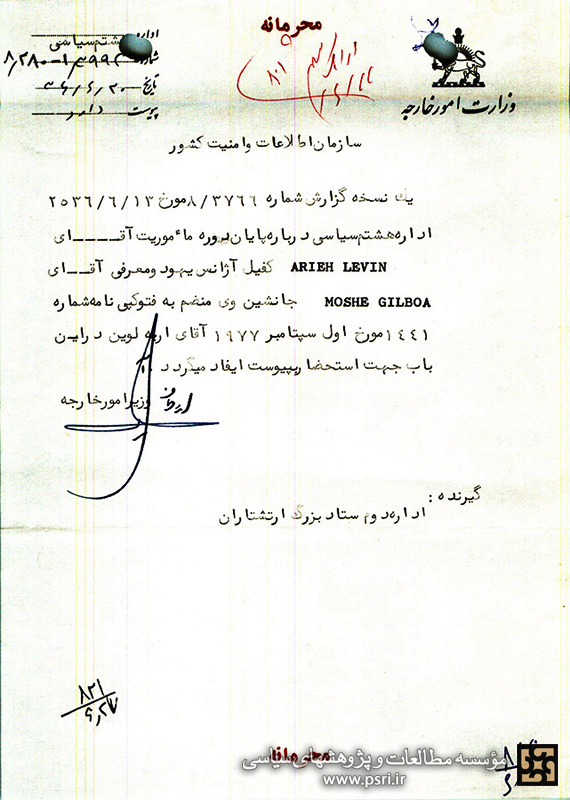 محرمانه
اداره هشتم سیاسی
شماره
تاریخ
پیوست دارد
وزارت امور خارجه
سازمان اطلاعات و امنیت کشور
یك نسخه گزارش شماره ۸/۳۷۶۶ مورخ ۲۵۳۶/۶/۱۳
اداره هشتم سیاسی درباره پایان دوره مأموریت آقـــــای
ARIEH LEVIN کفیل آژانس یهود و معرفی آقـــای
MOSHE GILBOA جانشین وی منضم به فتوکپی نامه شماره
۱۴۴۱ مورخ اول سپتامبر ۱۹۷۷ آقای اریه لوین در این
باب جهت استحضار بپیوست ایفاد میگردد.
وزیر امور خارجه
گیرنده :
اداره دوم ستاد بزرگ ارتشتاران
۸۲۱
۶/۲۷
محرمانه
مؤسسه مطالعات و پژوهشهای سیاسی
www.psri.ir